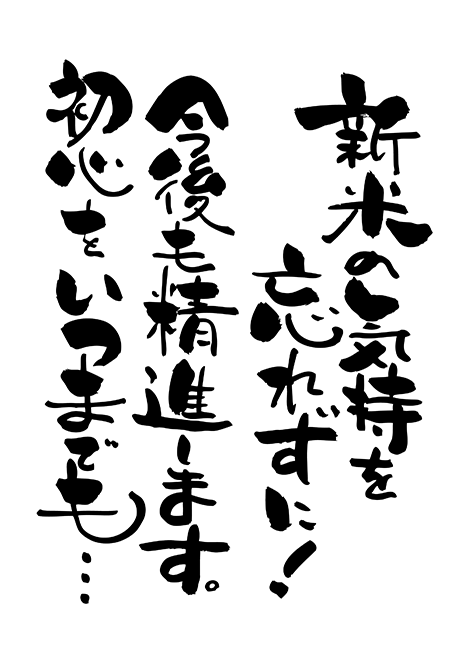 新米の気持を
忘れずに!
今後も精進します。
初心をいつまでも…